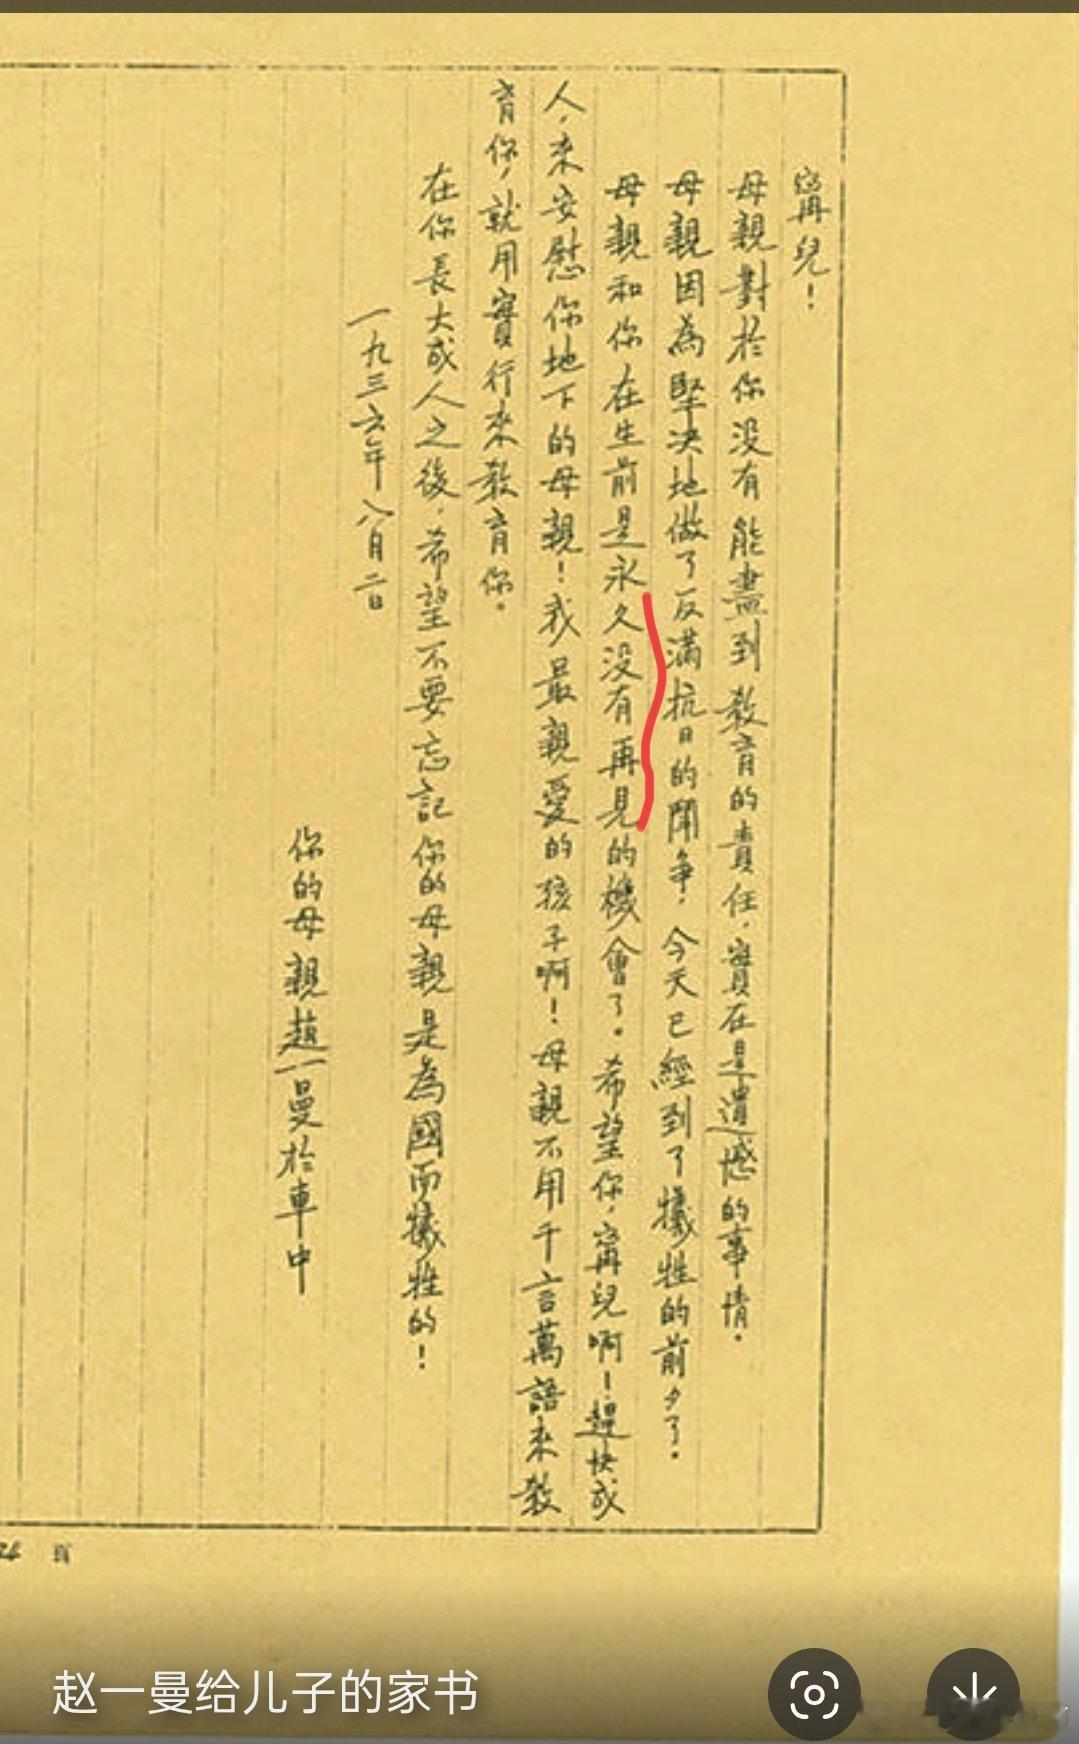 寗兒！
母親對於你没有能盡到教育的責任，實在是遺憾的事情。
母親因為堅决地做了反满抗日的鬪争，今天已經到了犧牲的前夕了。
母親和你在生前是永久没有再見的機會了。希望你，寗兒啊！趕快成
人，來安慰你地下的母親！我最親愛的孩子啊！母親不用千言萬語來教
育你，就用實行來教育你。
在你長大成人之後，希望不要忘記你的母親是為國而犧牲的！
一九三六年八月二日
你的母親趙一曼於車中
頁
赵一曼给儿子的家书